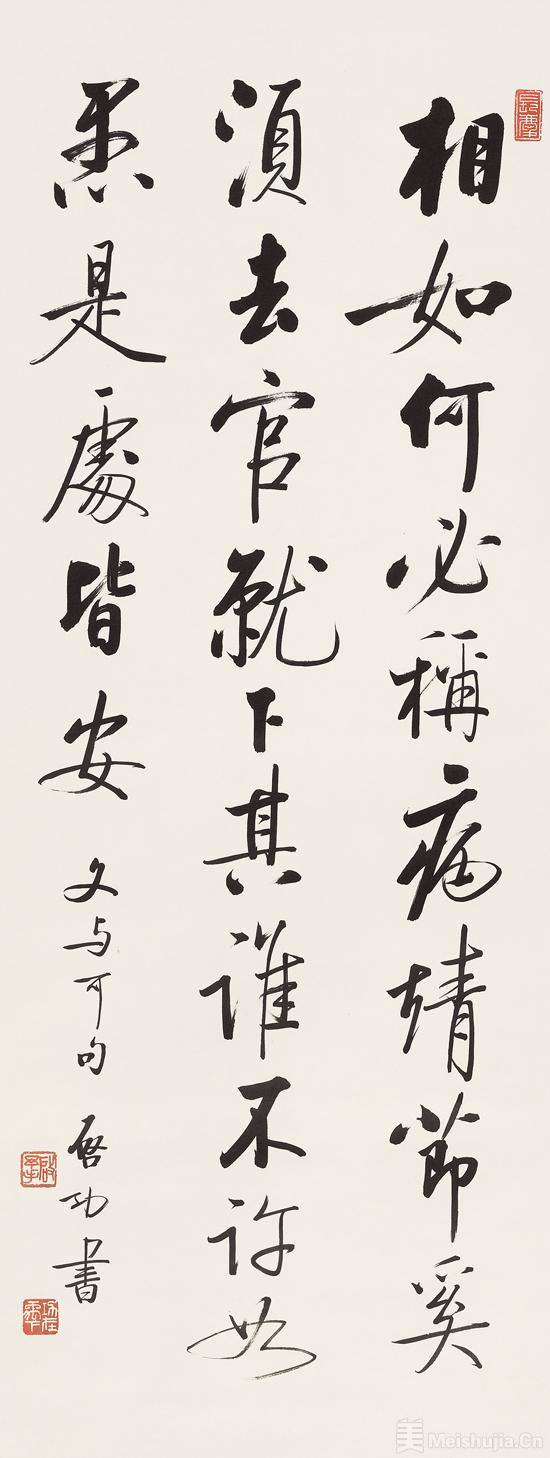 相如何必稱病靖節奚
須去官就下其誰不許如
愚是處皆安
文与可句 啓功書
美 Meishujia.Cn